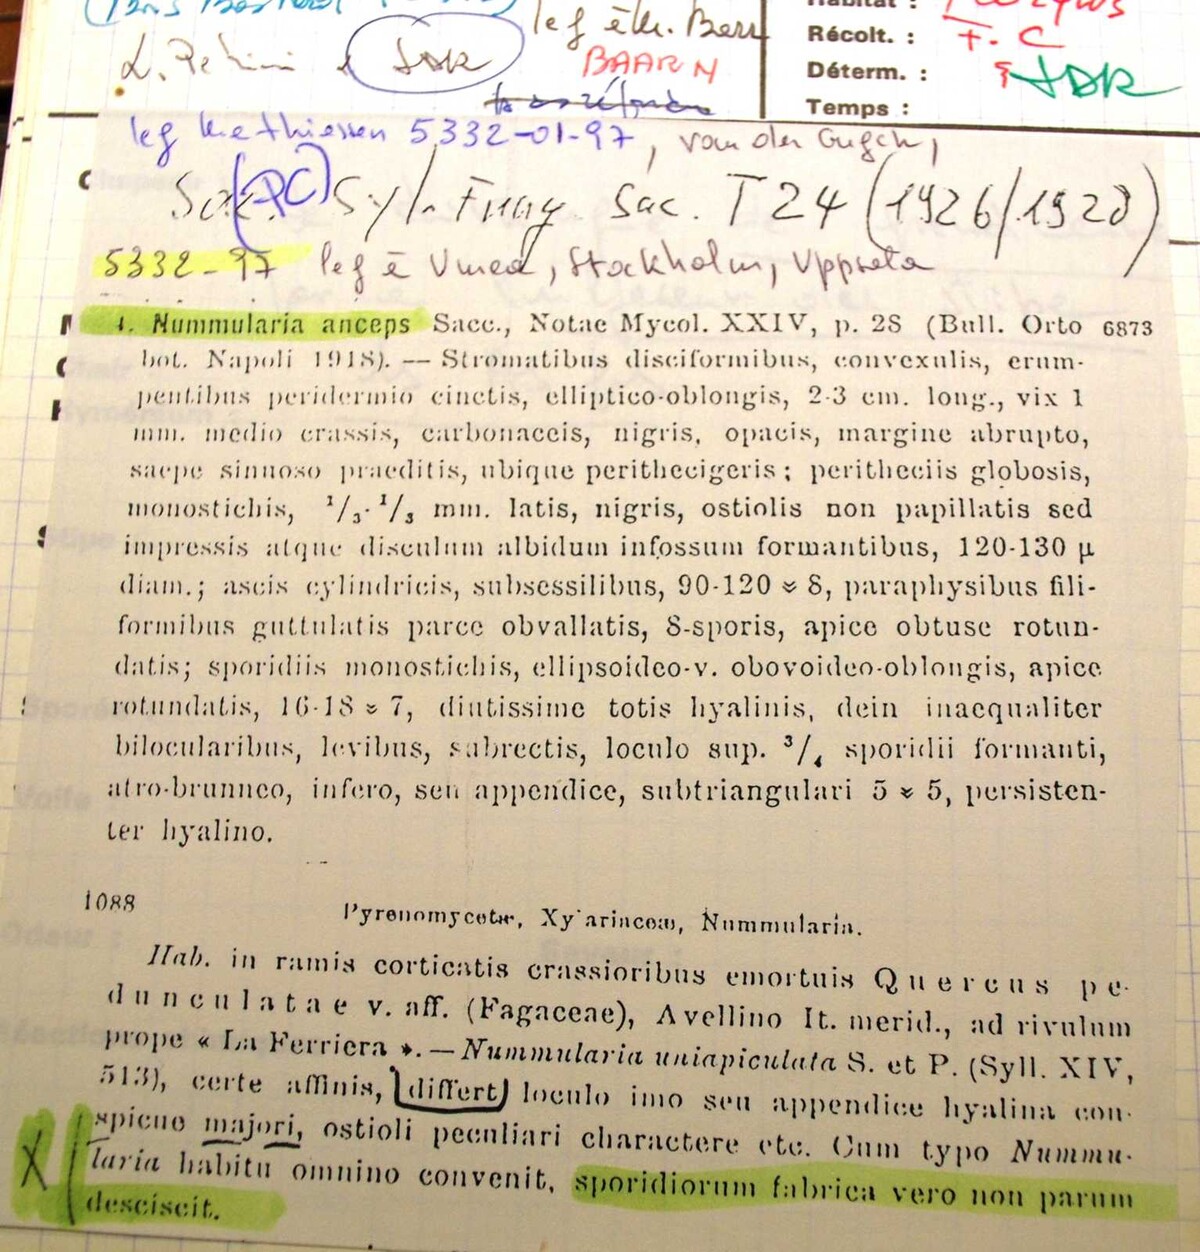 leg è th. Berr
Habitat :
Récolt. : F. C
L. Petrini e JDR
BAARN
Déterm. : JDR
Temps :
leg Mathiessen 5332-01-97, van der Gugch,
Sac. (PC) Syl. Fung. Sac. T 24 (1926/1928)
5332-97 leg è Umea, Stockholm, Uppsala
4. Nummularia anceps Sacc., Notae Mycol. XXIV, p. 28 (Bull. Orto 6873
bot. Napoli 1918). — Stromatibus disciformibus, convexulis, erum-
pentibus peridermio cinctis, elliptico-oblongis, 2-3 cm. long., vix 1
mm. medio crassis, carbonaceis, nigris, opacis, margine abrupto,
saepe sinuoso praeditis, ubique perithecigeris; peritheciis globosis,
monostichis, 1/3-1/3 mm. latis, nigris, ostiolis non papillatis sed
impressis atque disculum albidum infossum formantibus, 120-130 µ
diam.; ascis cylindricis, subsessilibus, 90-120 ≈ 8, paraphysibus fili-
formibus guttulatis parce obvallatis, 8-sporis, apice obtuse rotun-
datis; sporidiis monostichis, ellipsoideo-v. obovoideo-oblongis, apice
rotundatis, 16-18 ≈ 7, diutissime totis hyalinis, dein inaequaliter
bilocularibus, levibus, subrectis, loculo sup. 3/4 sporidii formanti,
atro-brunneo, infero, seu appendice, subtriangulari 5 ≈ 5, persisten-
ter hyalino.
1088
Pyrenomycetæ, Xylariaceæ, Nummularia.
Hab. in ramis corticatis crassioribus emortuis Quercus pe-
dunculatae v. aff. (Fagaceae), Avellino It. merid., ad rivulum
prope « La Ferriera ». — Nummularia uniapiculata S. et P. (Syll. XIV,
513), certe affinis, differt loculo imo seu appendice hyalina con-
spicue majori, ostioli peculiari charactere etc. Cum typo Nummu-
laria habitu omnino convenit, sporidiorum fabrica vero non parum
X desciscit.